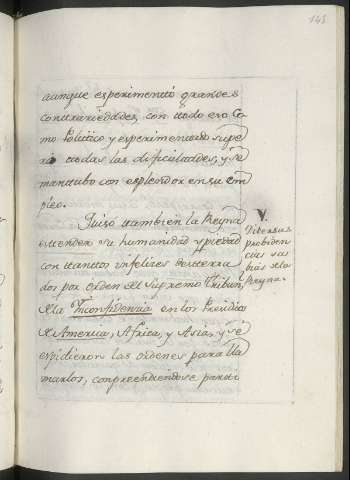 148
aunque esperimentó grandes
contrariedades, con todo ero Co
mo Politico y esperimentado supe
ró todas las dificultades, y se
mantubo con esplendor en su em
pleo.
Quiso tambien la Reyna
estender su humanidad y piedad
con tantos infelices desterra
dos por orden del Supremo Tribun,
dela Inconfidencia en los Presidios
de America, Africa, y Asia, y se
espidieron las ordenes para lla
marlos, conpreendiendose parti
V.
Diversas
probiden
cias sa
bias dela
Reyna.